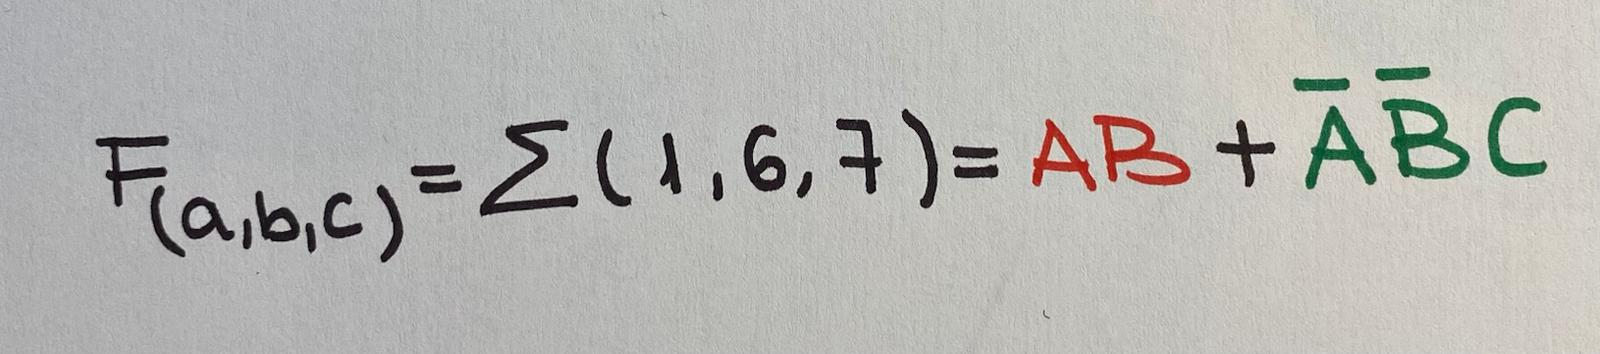 F(a,b,c) = Σ(1,6,7) = AB + A̅B̅C